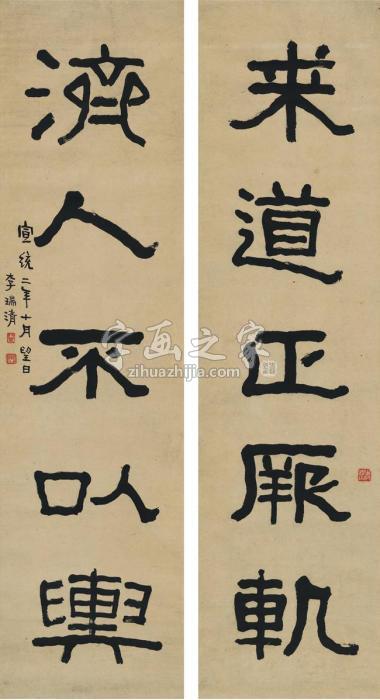 来道正厥軌
濟人不以輿
宣統二年十月望日
李瑞清
字画之家
zihuazhijia.com